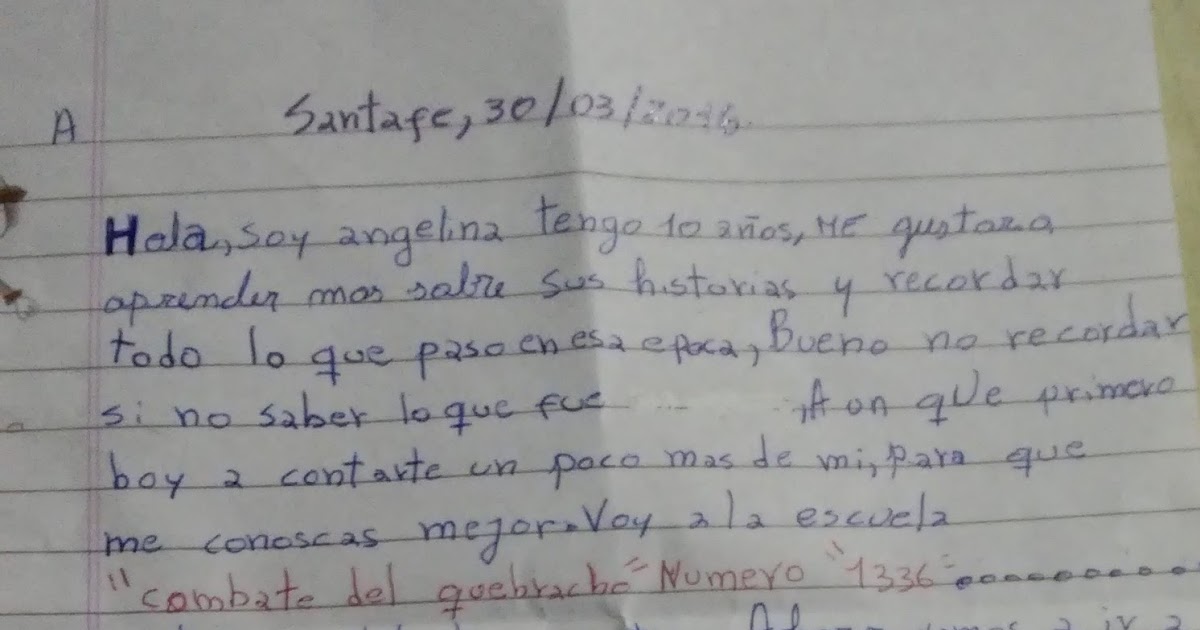 A Santafe, 30/03/2016.
Hola, soy angelina tengo 10 años, ME gustaza
aprender mas sobre sus historias y recordar
todo lo que paso en esa epoca, Bueno no recordar
si no saber lo que fue ,A on que primero
boy a contarte un poco mas de mi, para que
me conoscas mejor. Voy a la escuela
"combate del quebracho" Numero "1336"